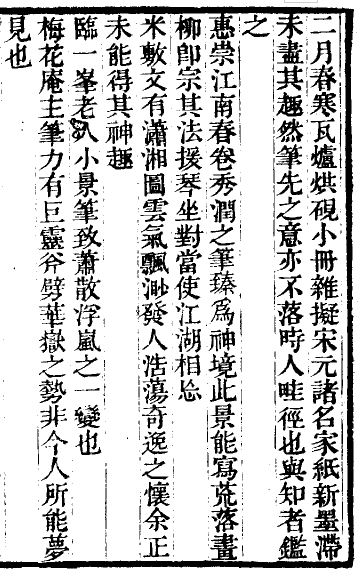 二月春寒瓦爐烘硯小冊雜擬宋元諸名家紙新墨滯
未盡其趣然筆先之意亦不落時人畦徑也與知者鑑
之
惠崇江南春卷秀潤之筆臻爲神境此景能寫荒落畫
柳卽宗其法援琴坐對當使江湖相忘
米敷文有瀟湘圖雲氣飄渺發人浩蕩奇逸之懷余正
未能得其神趣
臨一峯老人小景筆致蕭散浮嵐之一變也
梅花庵主筆力有巨靈斧劈華嶽之勢非今人所能夢
見也